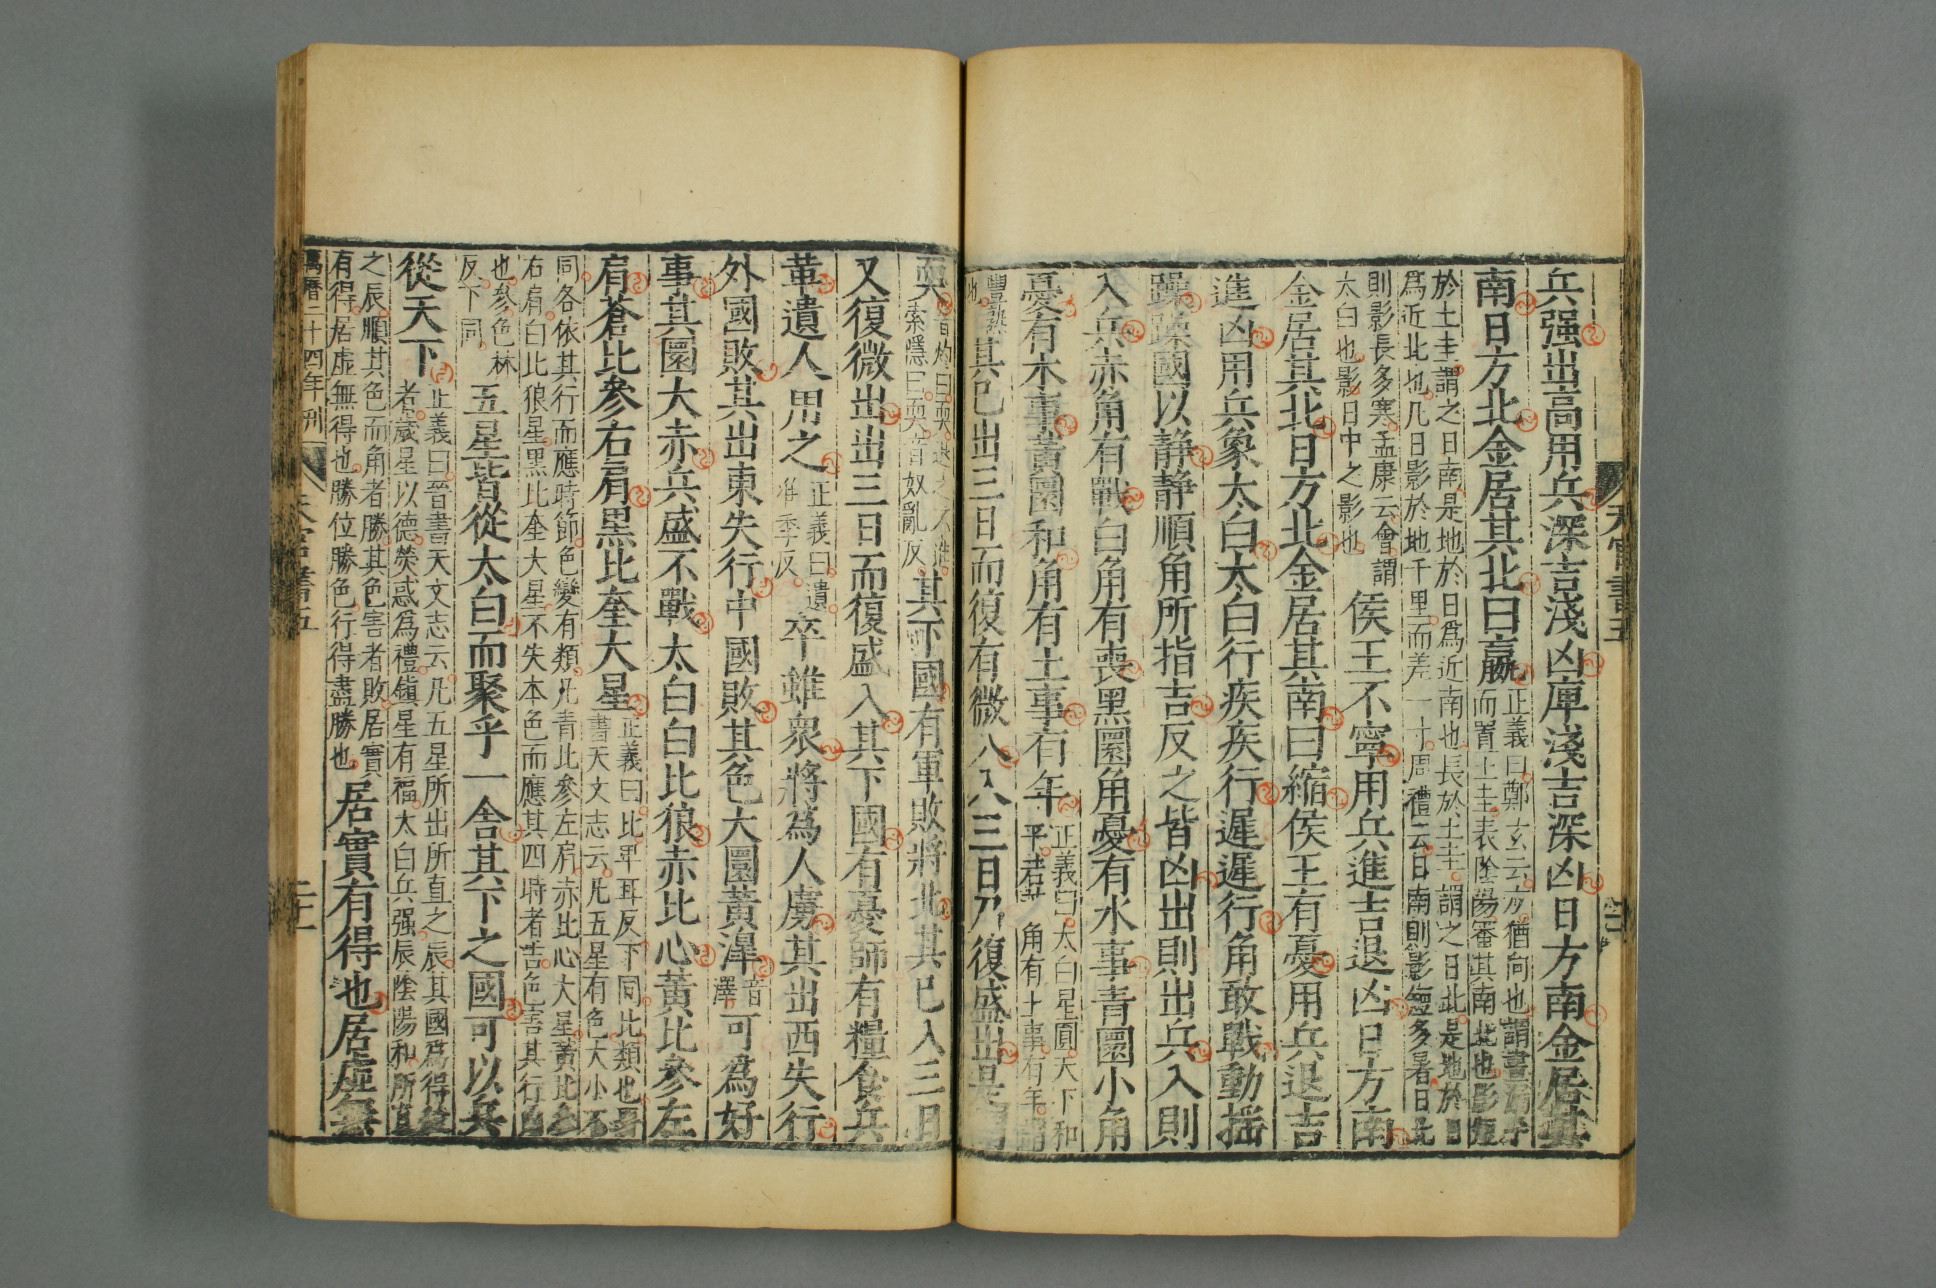 天官書五
兵强出高用兵深吉淺凶庳淺吉深凶日方南金居其
南日方北金居其北曰嬴
正義曰鄭玄云方猶向也謂晝漏半
而置土圭表陰陽審其南北也影短
於土圭謂之日南是地於日爲近南也長於土圭謂之日北是地於日
爲近北也凡日影於地千里而差一寸周禮云日南則影短多暑日北
則影長多寒孟康云會謂
太白也影日中之影也
侯王不寧用兵進吉退凶日方南
金居其北日方北金居其南曰縮侯王有憂用兵退吉
進凶用兵象太白太白行疾疾行遲遲行角敢戰動揺
躁躁國以靜靜順角所指吉反之皆凶出則出兵入則
入兵赤角有戰白角有喪黑圜角憂有水事青圜小角
憂有木事黃圜和角有土事有年
正義曰太白星圓天下和
平若芒角有土事有年謂
豐熟
也
其已出三日而復有微入入三日乃復盛出是謂
耎
晉灼曰耎退之不進
索隱曰耎音奴亂反
其下國有軍敗將北其已入三日
又復微出出三日而復盛入其下國有憂師有糧食兵
革遺人用之
正義曰遺
唯季反
卒雖衆將爲人虜其出西失行
外國敗其出東失行中國敗其色大圜黃滜
音
澤
可爲好
事其圜大赤兵盛不戰太白白比狼赤比心黃比參左
肩蒼比參右肩黑比奎大星
正義曰比卑耳反下同比類也晉
書天文志云凡五星有色大小不
同各依其行而應時節色變有類凡青比參左肩赤比心大星黃比參
右肩白比狼星黑比奎大星不失本色而應其四時者吉色害其行凶
也參色林
反下同
五星皆從太白而聚乎一舍其下之國可以兵
從天下
正義曰晉書天文志云凡五星所出所直之辰其國爲得位
者歲星以德熒惑爲禮鎮星有福太白兵强辰陰陽和所直
之辰順其色而角者勝其色害者敗居實
有得居虛無得也勝位勝色行得盡勝也
居實有得也居虛無
萬曆二十四年刊 天官書五 二十一